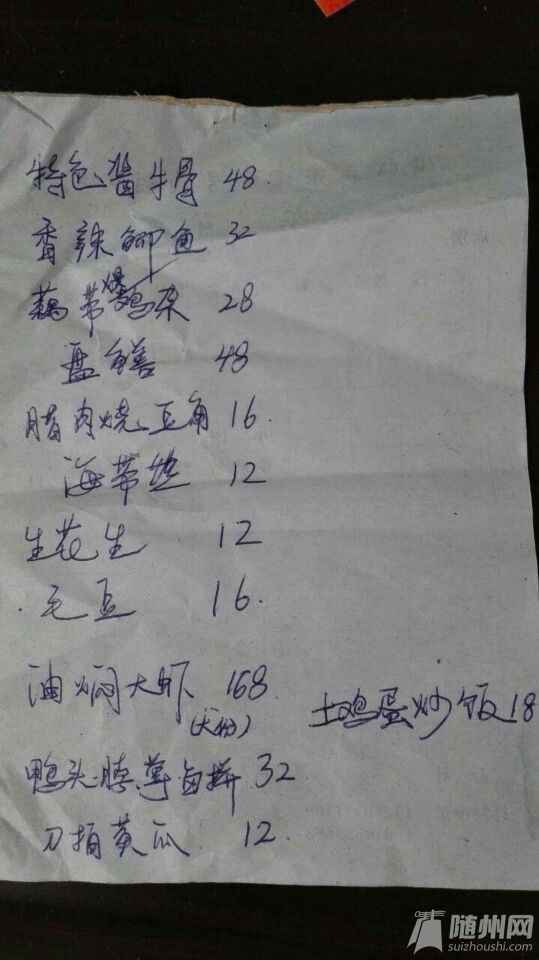 特色酱牛骨 48.
香辣鲫鱼 32
藕带爆鸡杂 28
盘鳝 48
腊肉烧豆角 16.
海带丝 12
生花生 12
毛豆 16.
油焖大虾 168
(大份)
土鸡蛋炒饭 18
鸭头.脖.掌卤拼 32
刀拍黄瓜 12.
随州网
suizhoushi.com